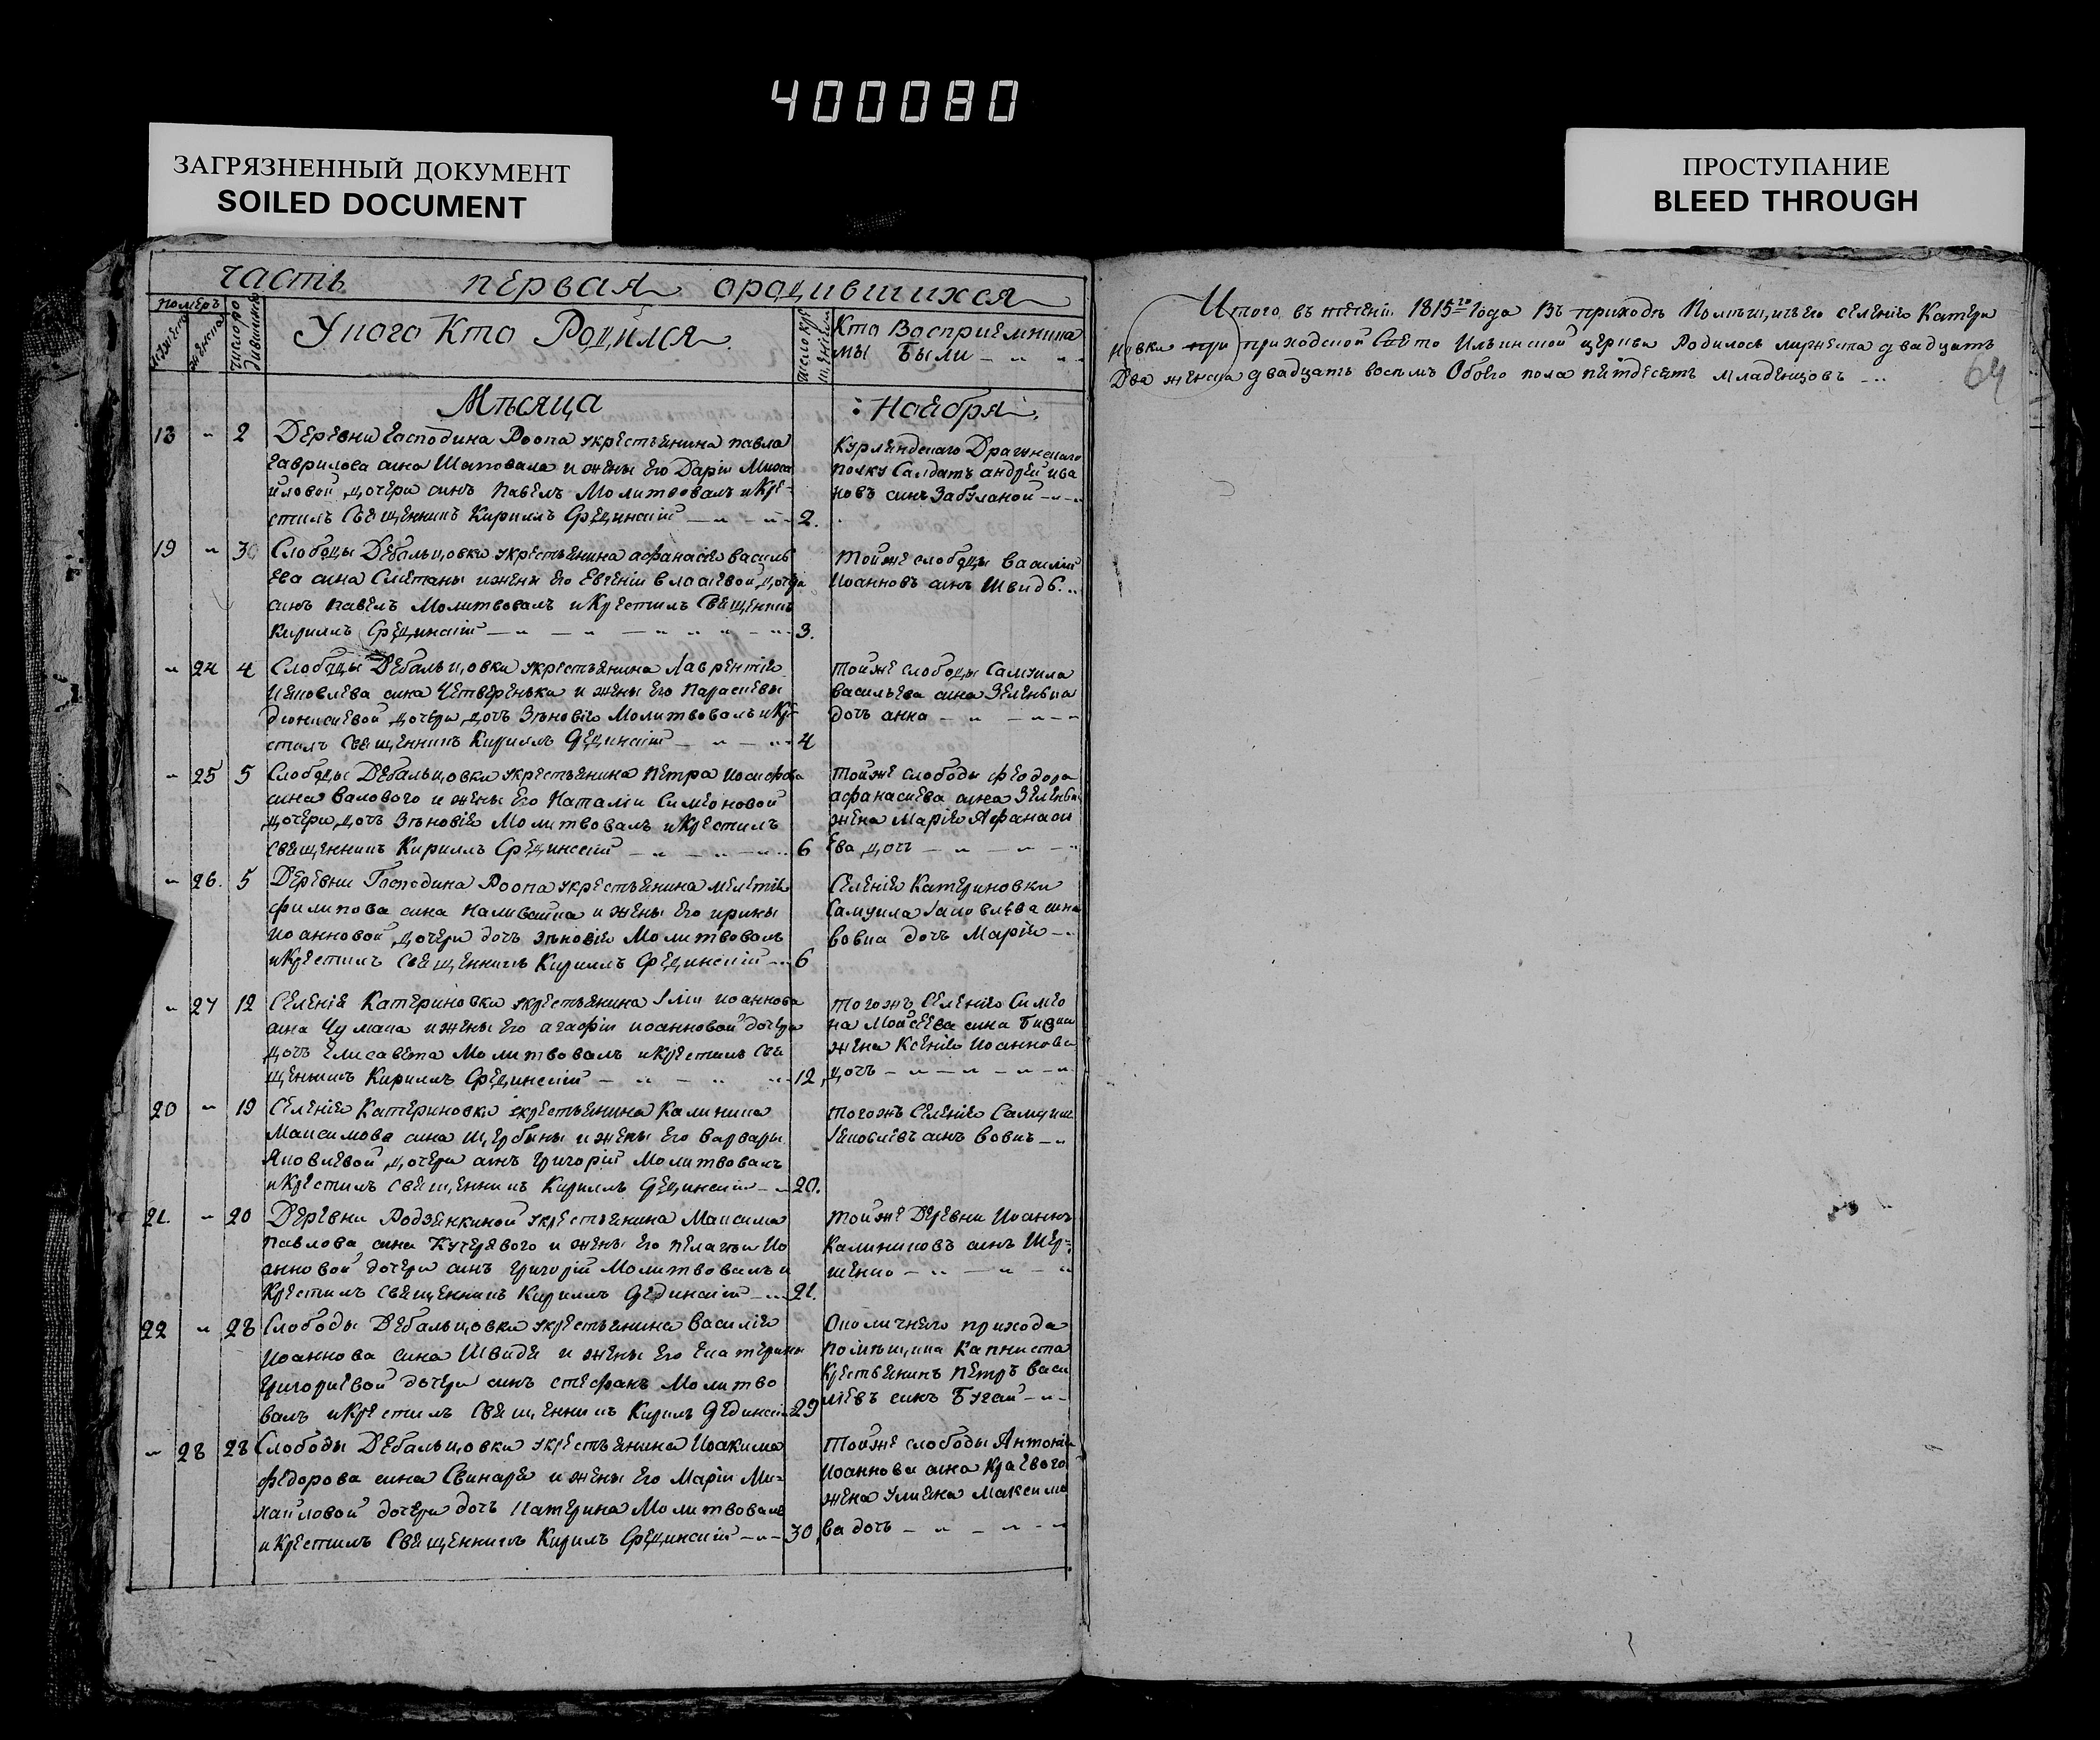 400080
ЗАГРЯЗНЕННЫЙ ДОКУМЕНТ
SOILED DOCUMENT
ПРОСТУПАНИЕ
BLEED THROUGH
часть первая ородившихся
номеръ
мужеска
женска
число ро
дившихся
У кого Кто Родился
число кре
щения
Кто Восприемника
мы были
Мѣсяца Ноября
13 2 Деревни Господина Роопа укрестьянина павла
гаврилова сина Шаповала и жены его Дарiи Миха
иловой дочери синъ павелъ Молитвовалъ и Кре=
стилъ Священникъ Кириллъ Фединскiй 2.
Курляндскаго Драгунскаго
полку Салдатъ андрей ива
новъ синъ Забулоной
19 30 Слободы Дебальцовки укрестьянина афанасiя василь
ева сина Сметаны ижени его Евгенiи власiевой дочери
синъ павелъ Молитвовалъ и Крестилъ Священникъ
Кириллъ Фединскiй 3.
Тойже слободы василiй
Иоанновъ синъ Швидь
24 4 Слободы Дебальцовки укрестьянина Лаврентiя
Иковлева сина Четверенька и жены его Параскевы
дiонисiевой дочери дочъ Зѣновiя Молитвовалъ и Кре=
стилъ Священникъ Кириллъ Фединскiй 4
Тойже слободы Самуила
васильева сина Зеленька
дочъ анна
25 5 Слободы Дебальцовки укрестьянина петра иосифова
сина валового и жены Его Наталiи Симеоновой
дочери дочъ Зѣновiя Молитвовалъ и Крестилъ
священникъ Кириллъ Фединскiй 6
Тойже слободы феодора
афанасiева сина Зеленька
жена Марiя Афанаси
ева дочъ
26. 5 Деревни Господина Роопа укрестьянина мелетiя
филипова сина Наливайка и жены Его ирины
иоанновой дочери дочъ зѣновiя Молитвовалъ
и Крестилъ Священникъ Кириллъ Фединскiй 6
Селенiя Катериновки
Самуила Iаковлева сина
вовка дочъ Марiя
27 12 Селенiя Катериновки укрестьянина Iлiи иоаннова
сина Чумака и жены Его агафiи иоанновой дочери
дочъ Елисавета Молитвовалъ и Крестилъ Свя
щенникъ Кириллъ Фединскiй 12
тогожъ Селенiя Симео
на Моисеева сина
жена Ксенiя Иоаннова
дочъ
20 19 Селенiя Катериновки укрестьянина Калиника
Максимова сина щербины и жены Его варвары
Яковлевой дочери синъ григорiй Молитвовалъ
и Крестилъ священникъ Кириллъ Фединскiй 20.
тогожъ Селенiя Самуил
Iяковлевъ синъ вовкъ
21. 20 Деревни Родзянкиной укрестьянина Максима
павлова сина Кучерявого и жены Его пелагеи Ио
анновой дочери синъ григорiй Молитвовалъ и
Крестилъ Священникъ Кириллъ Фединскiй 21.
тойже Деревни Иоаннъ
Калиниковъ синъ Шев=
ченко
22 28 Слободы Дебальцовки укрестьянина василiя
Иоаннова сина Швидя и жены Его екатерины
григорiевой дочери синъ стефанъ Молитво
валъ и Крестилъ Священникъ Кирилъ Фединскiй 29
Околичнего прихода
помѣщика Капниста
Крестьянинъ петръ васи
лiевъ синъ Бугай
28 28 Слободы Дебальцовки укрестьянина Иоакима
федорова сина Свинаря и жены Его Марiи Ми=
хайловой дочери дочъ Катерина Молитвовалъ
и Крестилъ Священникъ Кирилъ Фединскiй 30
Тойже слободы Антонiя
Иоаннова сина Краевого
жена Улияна Максимо
ва дочъ
Итого въ теченiи 1815го года Въ приходѣ Помѣщичьего селенiя Катери
новки при приходской Свято Ильинской церкви Родилось мужеска двадцать
Два женска двадцать восемь Обоего пола пятдесятъ младенцовъ
64